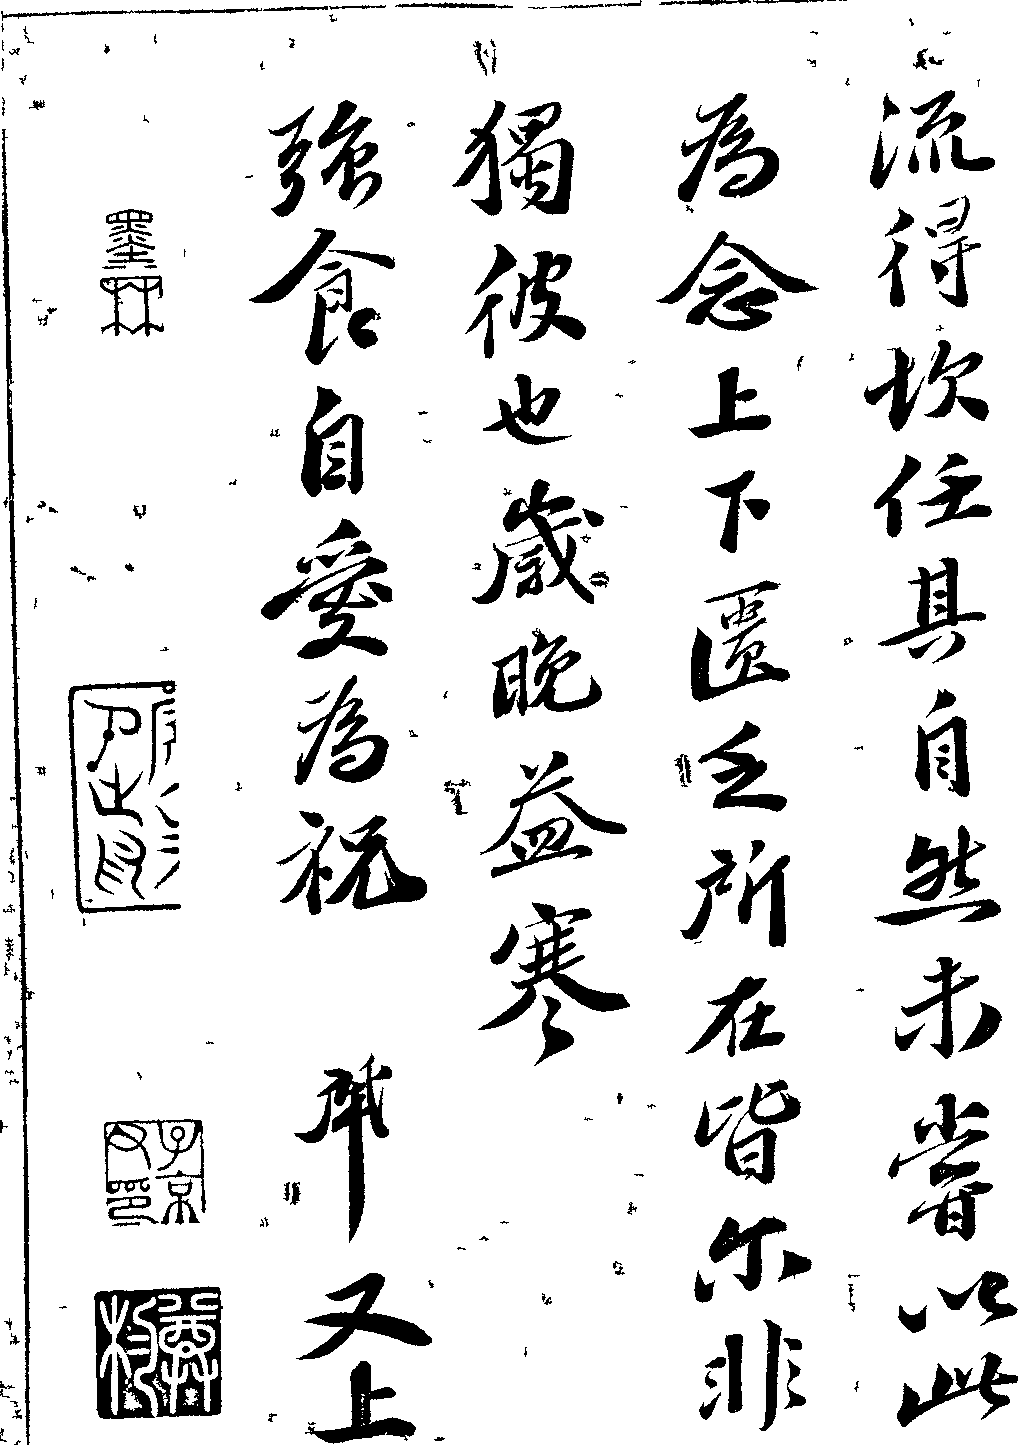 流得坎任其自然未嘗以此
為念上下匱乏所在皆尔非
獨彼也歲晚益寒
強食自愛為祝 軾又上
墨林
子京父印